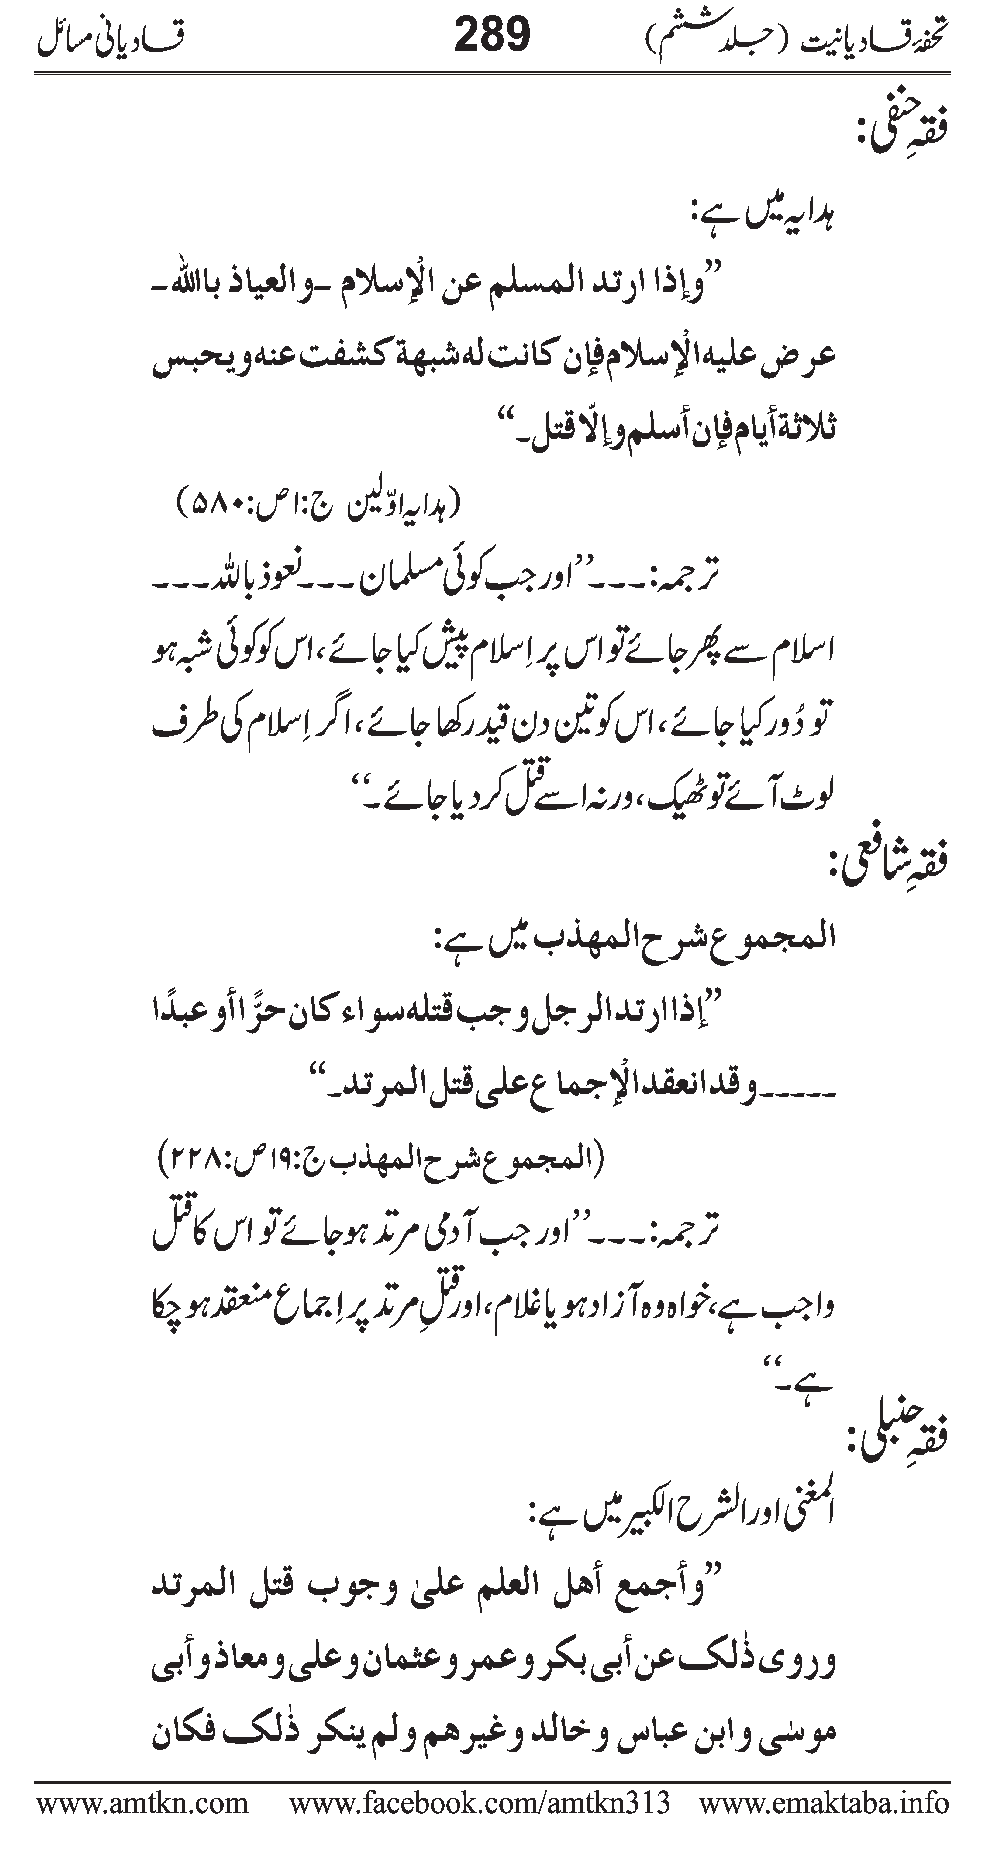 تحفۂ قادیانیت (جلد ششم) 289 قادیانی مسائل
فقہِ حنفی:
ہدایہ میں ہے:
”وإذا ارتد المسلم عن الإسلام -والعیاذ باللہ-
عرض علیہ الإسلام فإن کانت لہ شبھة کشفت عنہ ویحبس
ثلاثة أیام فإن أسلم وإلّا قتل۔“
(ہدایہ اوّلین ج:۱ ص:۵۸۰)
ترجمہ:۔۔۔”اور جب کوئی مسلمان ۔۔۔نعوذ باللہ۔۔۔
اسلام سے پھر جائے تو اس پر اِسلام پیش کیا جائے، اس کو کوئی شبہ ہو
تو دُور کیا جائے، اس کو تین دن قید رکھا جائے، اگر اِسلام کی طرف
لوٹ آئے تو ٹھیک، ورنہ اسے قتل کر دیا جائے۔“
فقہِ شافعی:
المجموع شرح المھذب میں ہے:
”إذا ارتد الرجل وجب قتلہ سواء کان حرًّا أو عبدًا
۔۔۔۔۔وقد انعقد الإجماع علی قتل المرتد۔“
(المجموع شرح المھذب ج:۱۹ ص:۲۲۸)
ترجمہ:۔۔۔”اور جب آدمی مرتد ہوجائے تو اس کا قتل
واجب ہے، خواہ وہ آزاد ہو یا غلام، اور قتلِ مرتد پر اِجماع منعقد ہوچکا
ہے۔“
فقہِ حنبلی:
المغنی اور الشرح الکبیر میں ہے:
”وأجمع أھل العلم علیٰ وجوب قتل المرتد
وروی ذٰلک عن أبی بکر وعمر وعثمان وعلی ومعاذ وأبی
موسٰی وابن عباس وخالد وغیرھم ولم ینکر ذٰلک فکان
www.amtkn.com www.facebook.com/amtkn313 www.emaktaba.info